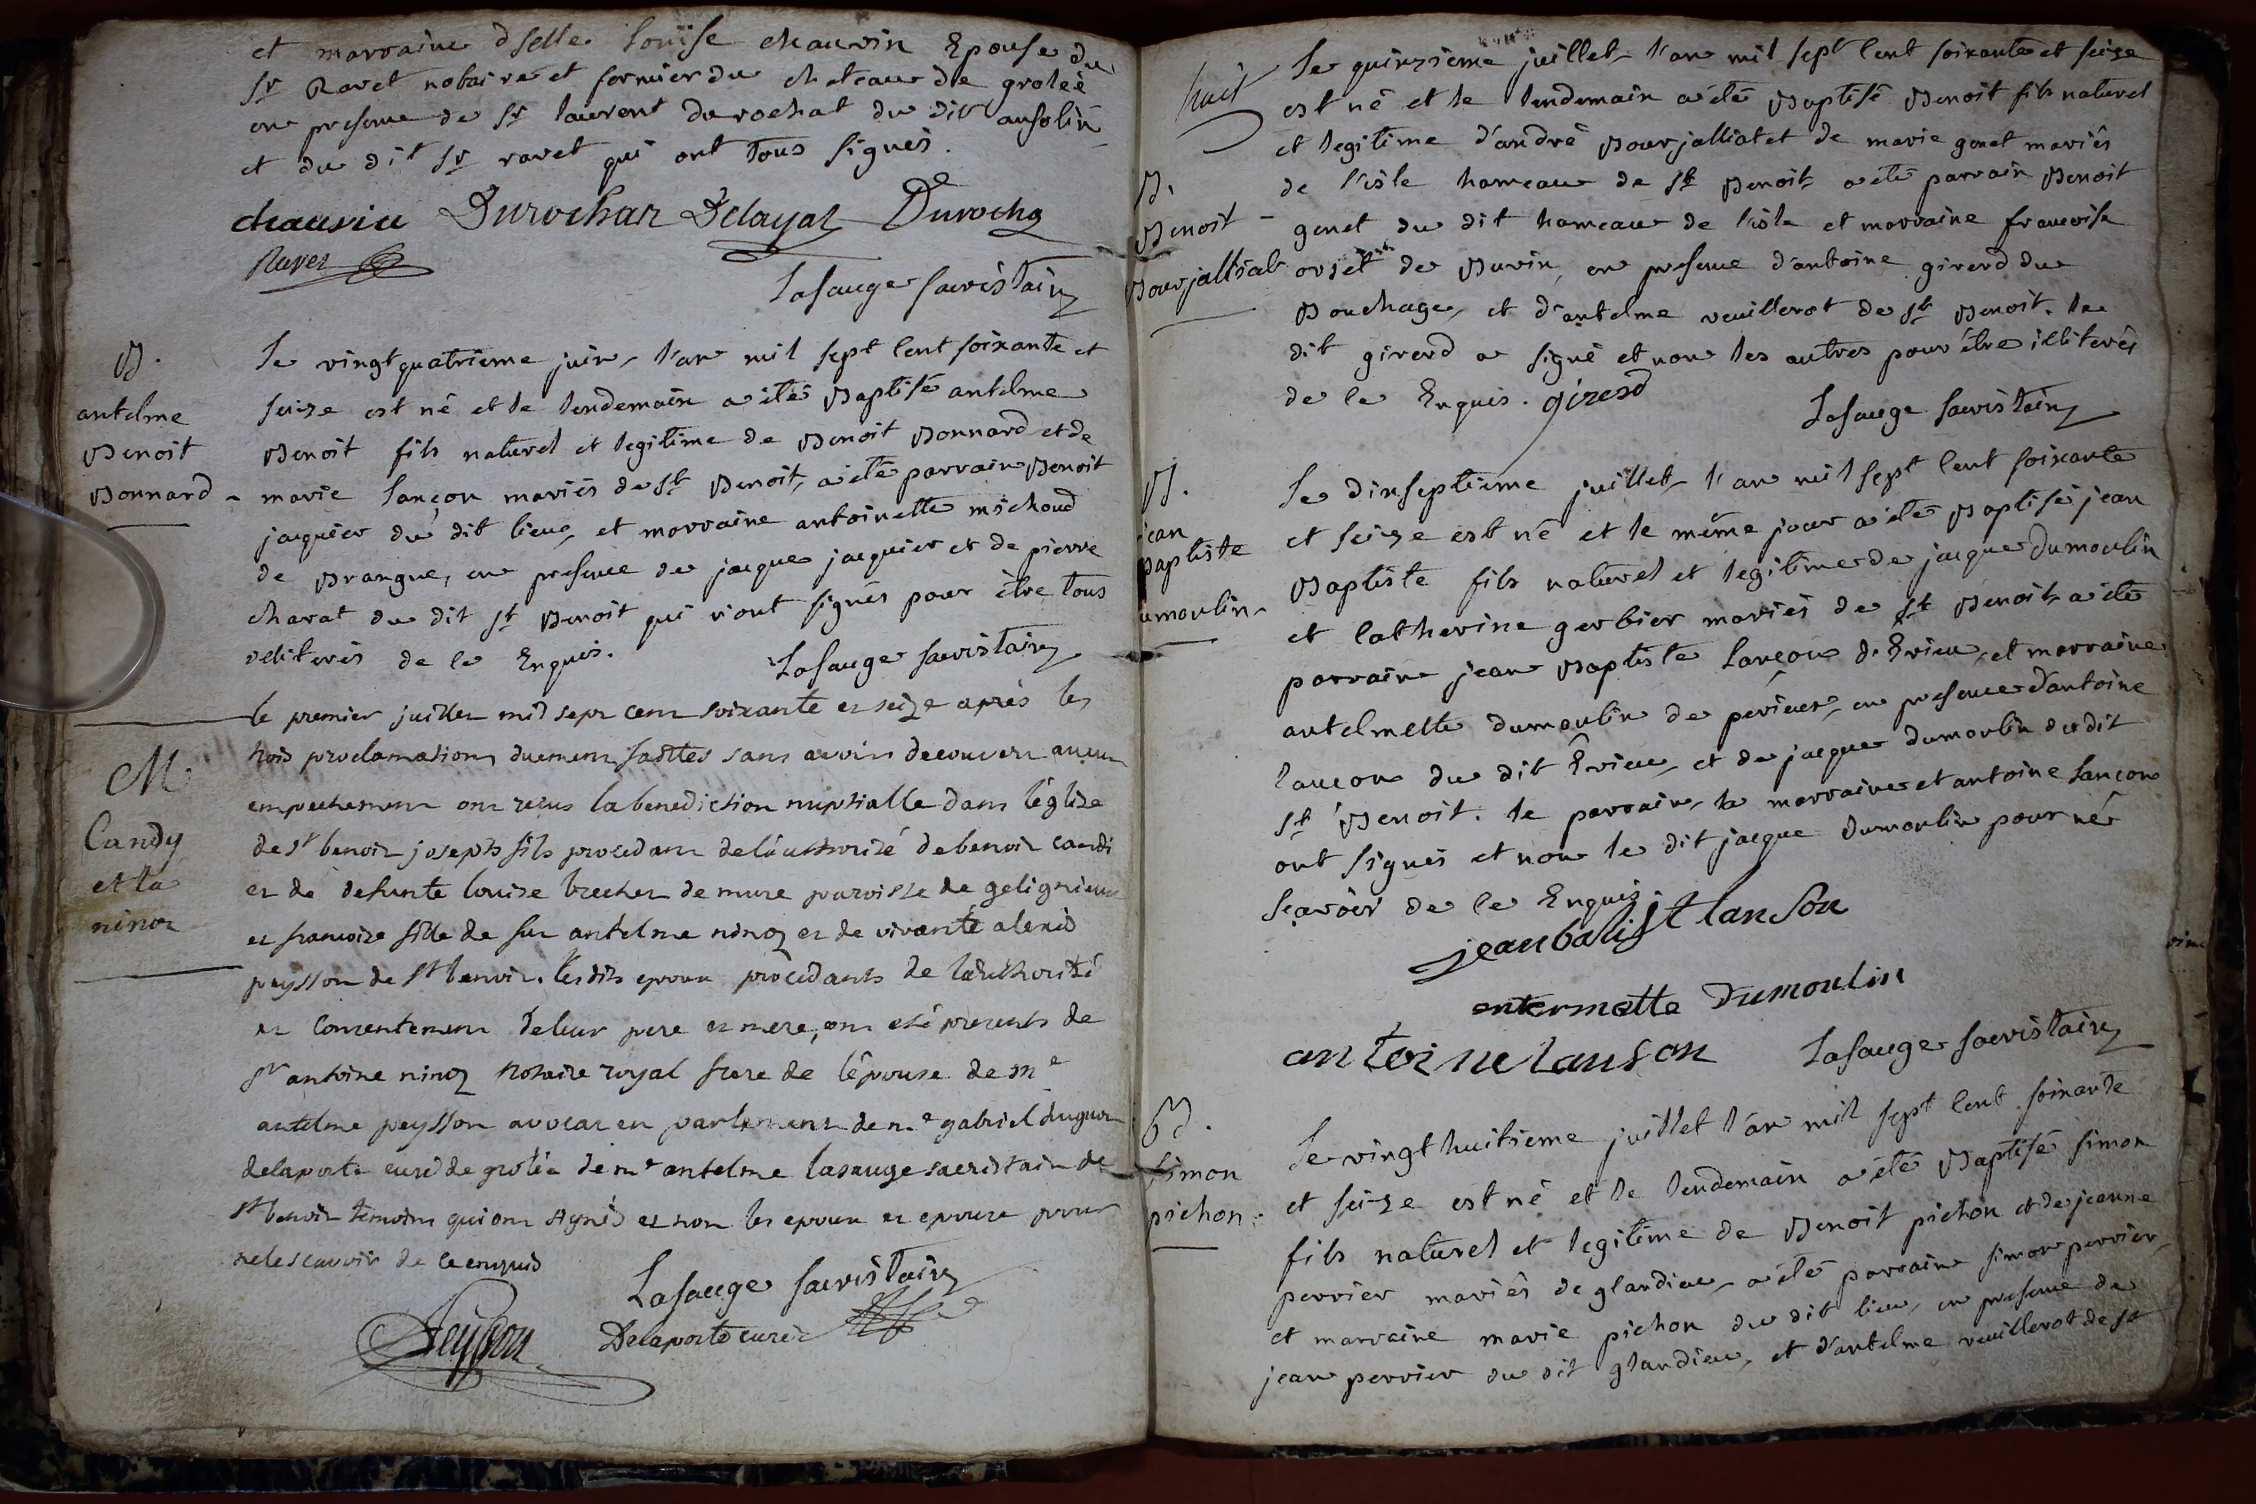 et marraine dselle Louise chauvin Epouse du
Sr Ravet notaire et fermier du chateau de groleé
en presence de Sr laurent durochat du dit ansolin
et du dit Sr ravet qui ont tous signés.
chauvin Durochat Delayat Durocha
Ravet
Lasauge sacristain
B.
antelme
Benoit
Bonnard
Le vingt quatrieme juin l'an mil sept cent soixante et
seize est né et le lendemain a été Baptisé antelme
Benoit fils naturel et legitime de Benoit Bonnard et de
marie Lançon mariés de St Benoit, a été parrain Benoit
jacquier du dit lieu, et marraine antoinette michoud
de Brangue, en presence de jacque jacquier et de pierre
charat du dit St Benoit qui n'ont signés pour être tous
illiterés de ce Enquis.
Lasauge sacristain
M
Candy
et la
ninoz
le premier juillet mil sept cent soixante et seize aprés les
trois proclamations duement faittes sans avoir decouvert aucun
empechement ont reçus la benediction nuptialle dans l'église
de st benoit joseph fils procedant de l'authorité de benoit candi
et de defunte louise brechet de mure parroisse de gelignieux
et francoise fille de feu antelme ninoz et de vivante alexis
peysson de st benoit. les dits epoux procedants de l'authorité
et consentement de leur pere et mere, ont eté presents de
sr antoine ninoz notaire royal frere de l'épouse de me
antelme peysson avocat en parlement de me gabriel
delaporte curé de grolée de mr antelme lasauge sacristain de
st benoit temoins qui ont signés et non les epoux et epouse pour
ne le scavoir de ce enquis
Lasauge sacristain
Peysson Delaporte curé
huit
B.
Benoit
Bourjalliat
Le quinzieme juillet l'an mil sept cent soixante et seize
est né et le lendemain a été Baptisé Benoit fils naturel
et legitime d'andré Bourjalliat et de marie genet mariés
de l'isle hameau de St Benoit a été parrain Benoit
genet du dit hameau de l'isle et marraine francoise
orset de Buvin, en presence d'antoine girerd du
Bouchage, et d'antelme veuillerot de St Benoit. le
dit girerd a signé et non les autres pour être illiterés
de ce Enquis. girerd
Lasauge sacristain
B.
jean
Baptiste
umoulin
Le dixseptieme juillet l'an mil sept cent soixante
et seize est né et le même jour a été Baptisé jean
Baptiste fils naturel et legitime de jacque dumoulin
et Catherine gerbier mariés de St Benoit a été
parrain jean Baptiste Lançon d'Evieu, et marraine
antelmette dumoulin de perieux, en presence d'antoine
Lançon du dit Evieu, et de jacque dumoulin dudit
St Benoit. le parrain, la marraine et antoine Lançon
ont signés et non le dit jacque dumoulin pour ne
sçavoir de ce Enquis
jean batist lanson
entermette Dumoulin
antoine lanson
Lasauge sacristain
B.
simon
pichon
Le vingt huitieme juillet l'an mil sept cent soixante
et seize est né et le lendemain a été Baptisé simon
fils naturel et legitime de Benoit pichon et de jeanne
perrier mariés de glandieu, a été parrain simon perrier,
et marraine marie pichon du dit lieu, en presence de
jean perrier du dit glandieu, et d'antelme veuillerot de St